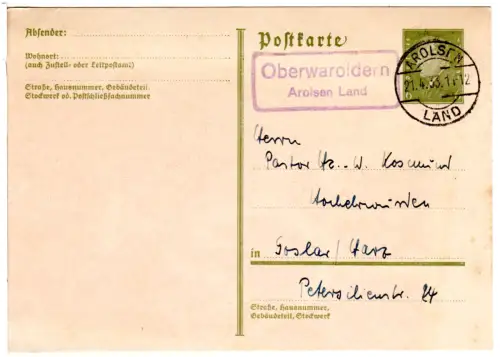 Absender:
Wohnort:
(auch Zustell- oder Leitpostamt)
Straße, Hausnummer, Gebäudeteil,
Stockwerk od. Postschließfachnummer
Postkarte
Oberwaroldern
Arolsen Land
AROLSEN
21.4.33. 11-12
LAND
Herrn
Pastor W. Kosmund
Hochehrwürden
in Goslar / Harz
Petersilienstr. 24
Straße, Hausnummer,
Gebäudeteil, Stockwerk